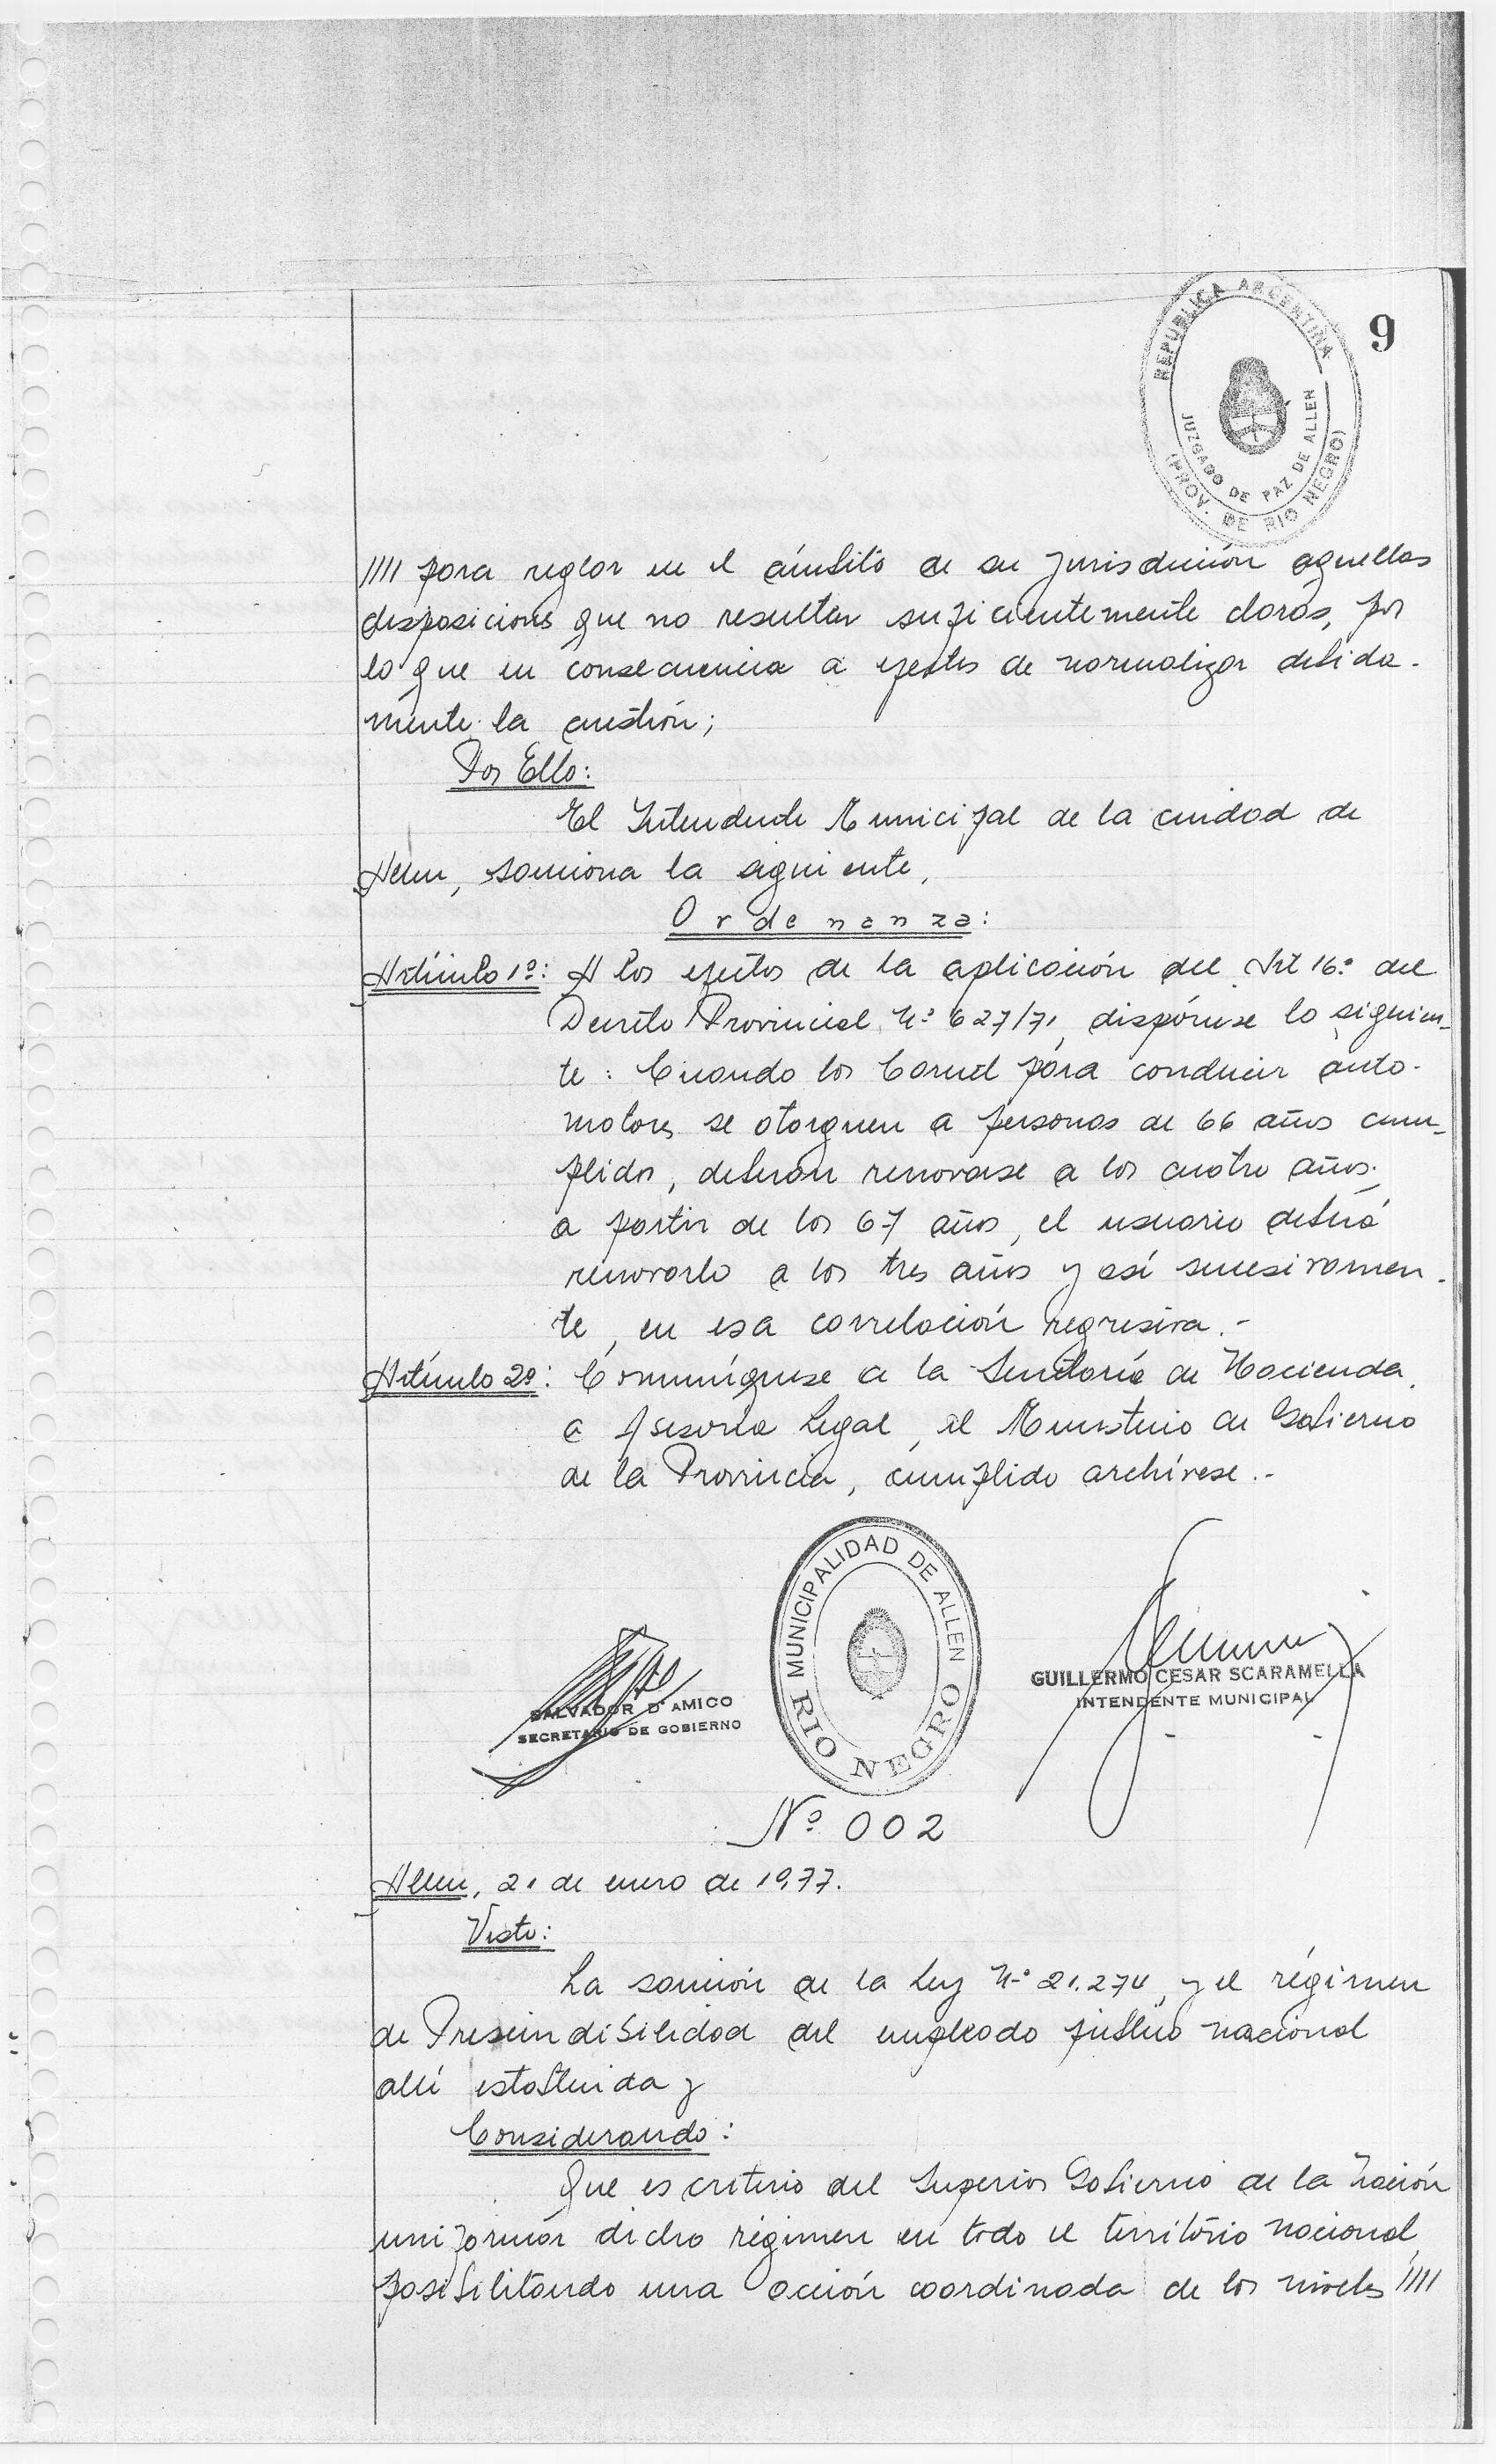 REPUBLICA ARGENTINA
JUZGADO DE PAZ DE ALLEN
(PROV. DE RIO NEGRO)
9
//// para reglar en el ámbito de su jurisdicción aquellas
disposiciones que no resulten suficientemente claras, por
lo que en consecuencia a efectos de normalizar debida-
mente la cuestión;
Por Ello:
El Intendente Municipal de la ciudad de
Allen, sanciona la siguiente,
Ordenanza:
Artículo 1º: A los efectos de la aplicación del Art 16º del
Decreto Provincial Nº 627/71, dispónese lo siguien-
te: Cuando los Carnet para conducir auto-
motores se otorguen a personas de 66 años cum-
plidos, deberán renovarse a los cuatro años;
a partir de los 67 años, el usuario deberá
renovarlo a los tres años y así sucesivamen-
te, en esa correlación regresiva.-
Artículo 2º: Comuníquese a la Secretaría de Hacienda,
a Asesoría Legal, al Ministerio de Gobierno
de la Provincia, cumplido archívese.-
MUNICIPALIDAD DE ALLEN
RIO NEGRO
SALVADOR D'AMICO
SECRETARIO DE GOBIERNO
GUILLERMO CESAR SCARAMELLA
INTENDENTE MUNICIPAL
Nº 002
Allen, 21 de enero de 1977.
Visto:
La sanción de la Ley Nº 21.274, y el régimen
de Prescindibilidad del empleado público nacional
allí estatuida y
Considerando:
Que es criterio del Superior Gobierno de la Nación
uniformar dicho régimen en todo el territorio nacional,
posibilitando una acción coordinada de los niveles ////